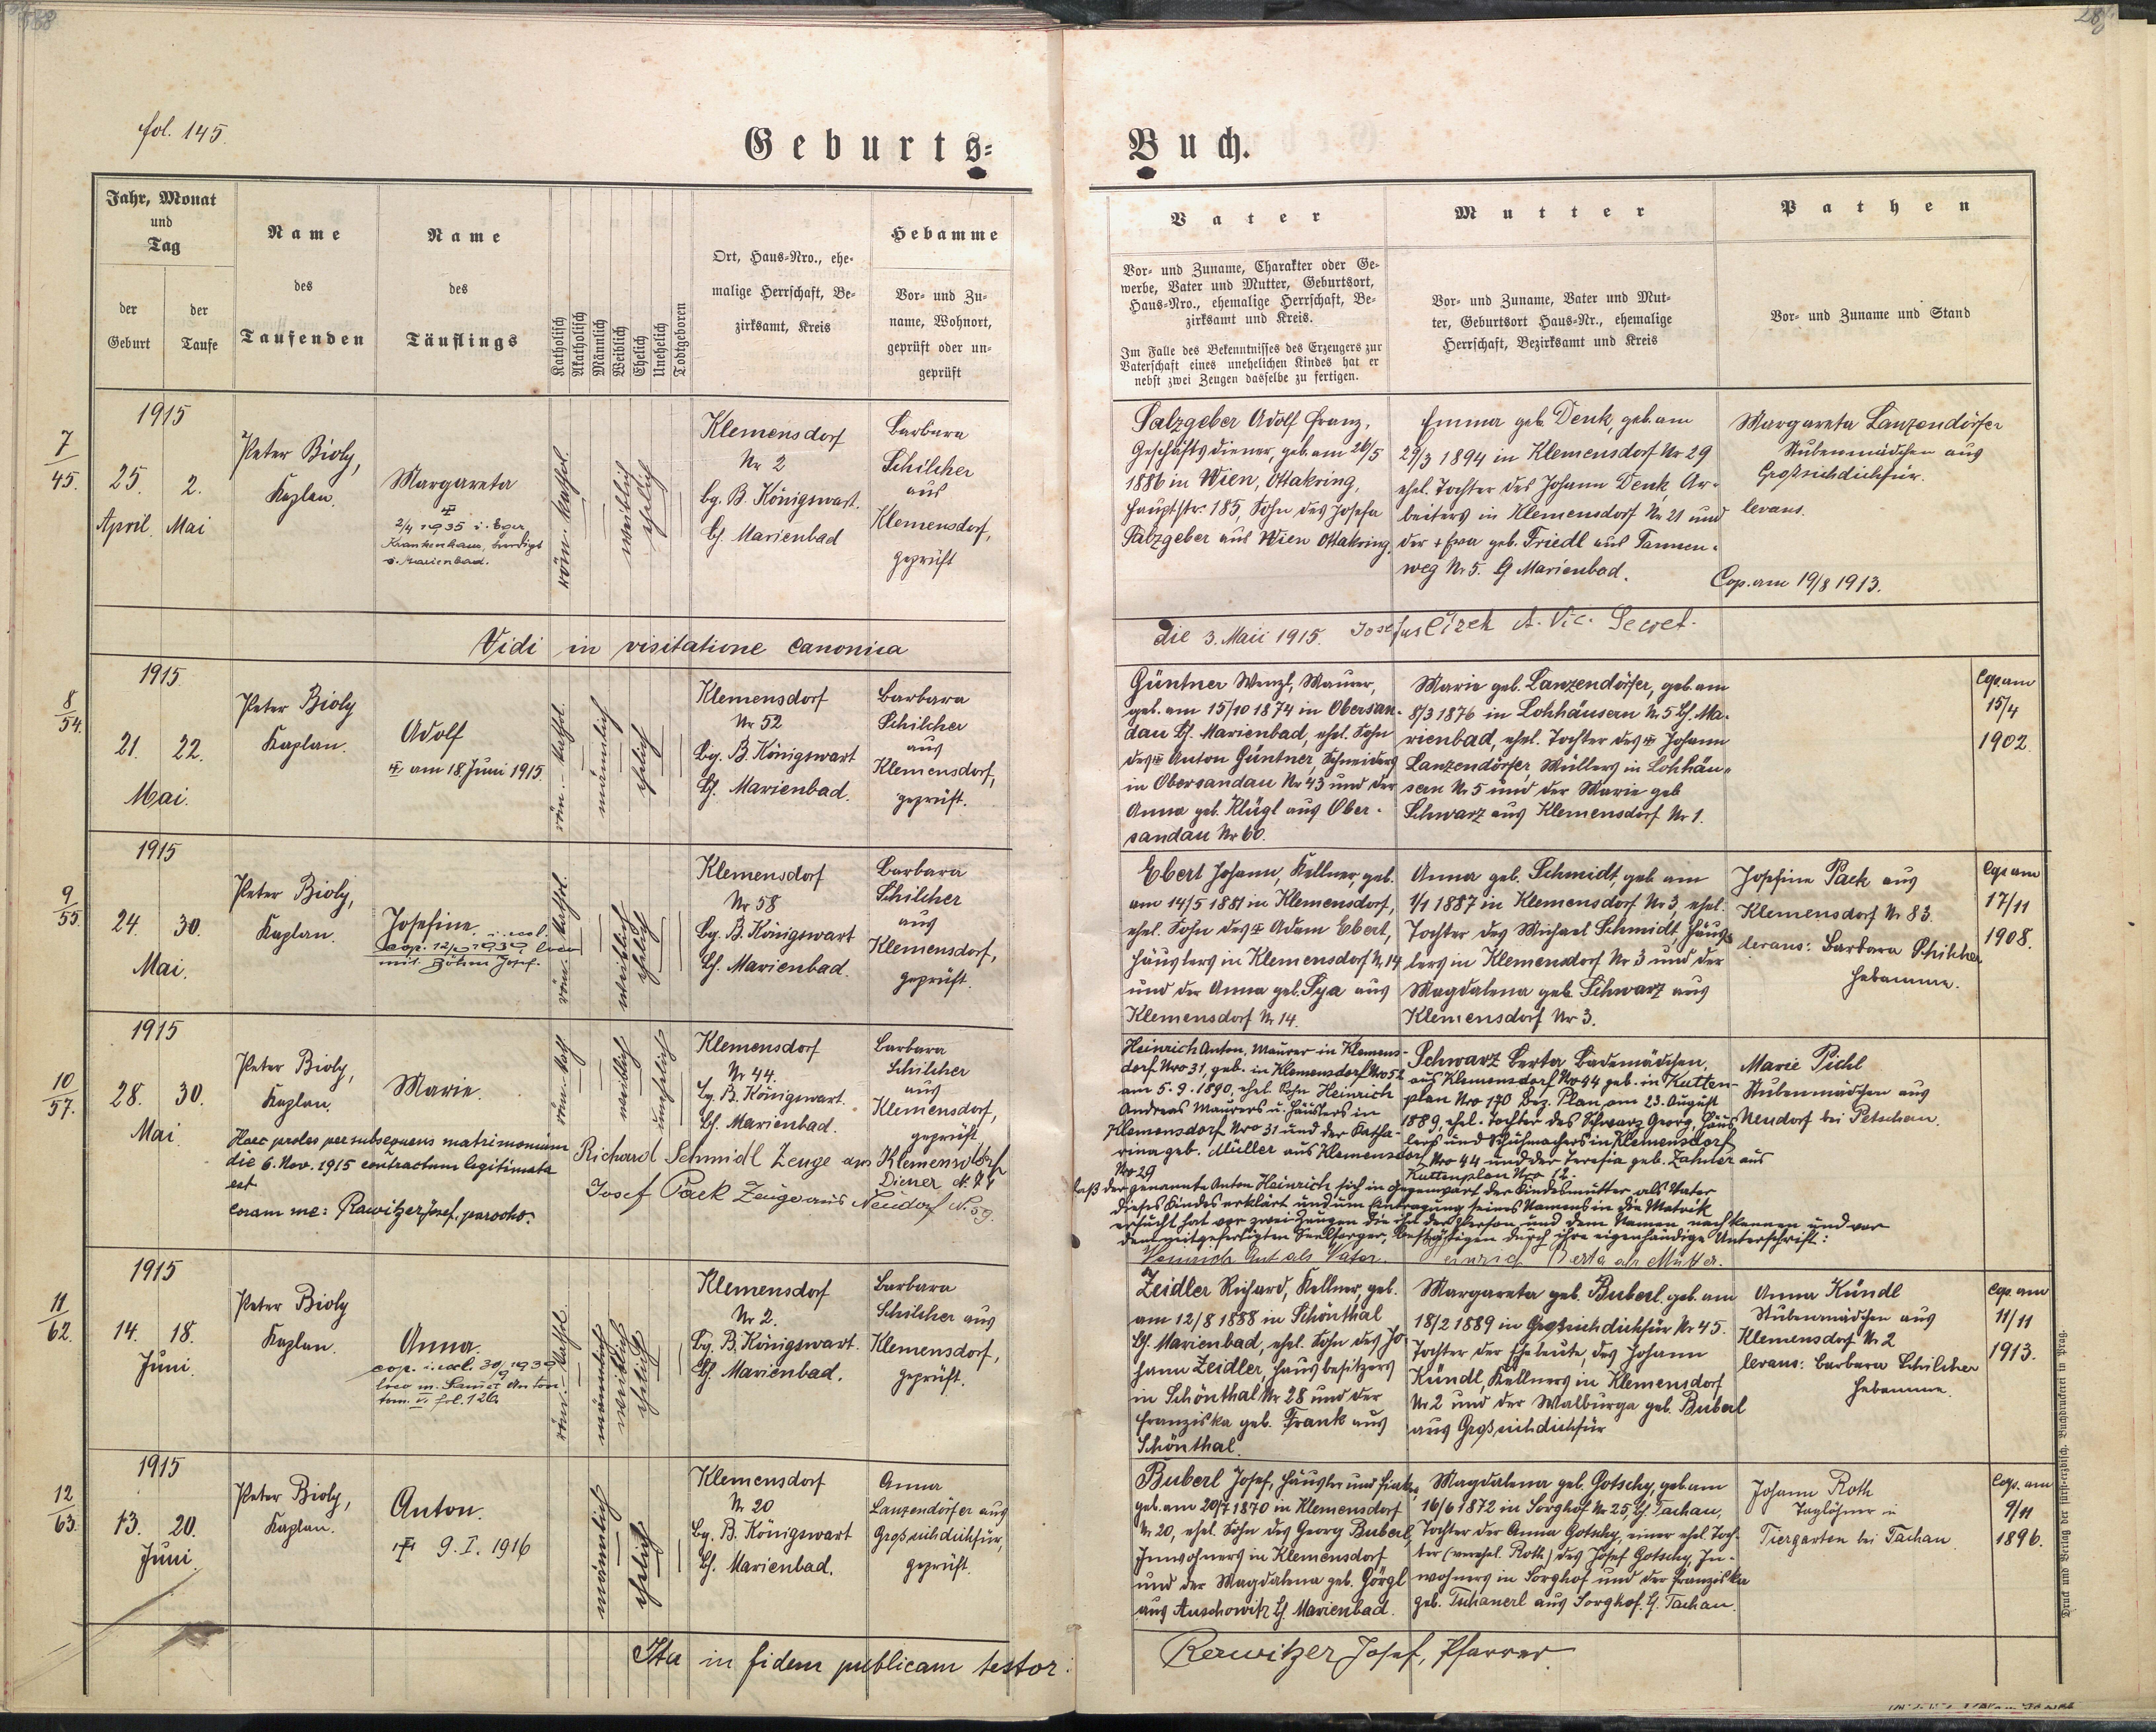 fol. 145.
Geburts=
Buch.
Jahr, Monat
und
Tag
der
Geburt
der
Taufe
Name
des
Taufenden
Name
des
Täuflings
Katholisch
Akatholisch
Männlich
Weiblich
Ehelich
Unehelich
Todtgeboren
Ort, Haus-Nro., ehe-
malige Herrschaft, Be-
zirksamt, Kreis
Hebamme
Vor- und Zu-
name, Wohnort,
geprüft oder un-
geprüft
Vater
Vor- und Zuname, Charakter oder Ge-
werbe, Vater und Mutter, Geburtsort,
Haus-Nro., ehemalige Herrschaft, Be-
zirksamt und Kreis.
Im Falle des Bekenntnisses des Erzeugers zur
Vaterschaft eines unehelichen Kindes hat er
nebst zwei Zeugen dasselbe zu fertigen.
Mutter
Vor- und Zuname, Vater und Mut-
ter, Geburtsort Haus-Nr., ehemalige
Herrschaft, Bezirksamt und Kreis
Pathen
Vor- und Zuname und Stand
7
45.
1915
25. 2.
April. Mai
Peter Bioly,
Kaplan.
Margareta
2/4 1935 i. Eger,
Krankenhaus, beerdigt
i. Marienbad.
röm. kathol.
weiblich
ehelich
Klemensdorf
Nr 2
bg. B. Königswart.
bh. Marienbad
Barbara
Schilcher
aus
Klemensdorf,
geprüft
Salzgeber Adolf Franz,
Geschäftsdiener, geb. am 26/5
1886 in Wien, Ottakring,
Hauptstr. 185, Sohn des Josefa
Salzgeber aus Wien Ottakring.
Emma geb. Denk, geb. am
29/3 1894 in Klemensdorf Nr 29
ehel. Tochter des Johann Denk, Ar-
beiters in Klemensdorf Nr 21 und
der + Eva geb. Friedl aus Tannen-
weg Nr 5. G Marienbad.
Margareta Lanzendörfer
Stubenmädchen aus
Großsichdichfür.
levans.
Cop. am 19/8 1913.
Vidi in visitatione canonica
die 3. Maii 1915. Josefus Cizek A. Vic. Secret.
8
54.
1915
21. 22.
Mai.
Peter Bioly
Kaplan.
Adolf
am 18. Juni 1915.
röm.- kathol.
männlich
ehelich
Klemensdorf
Nr 52
bg. B. Königswart
bh. Marienbad.
Barbara
Schilcher
aus
Klemensdorf,
geprüft.
Güntner Wenzl, Maurer,
geb. am 15/10 1874 in Obersan-
dau bh. Marienbad, ehel. Sohn
des Anton Güntner, Schneiders
in Obersandau Nr 43 und der
Anna geb. Klügl aus Ober-
sandau Nr 60.
Marie geb. Lanzendörfer, geb. am
8/3 1876 in Lohhäusern Nr 5 bh. Ma-
rienbad, ehel. Tochter des Johann
Lanzendörfer, Müllers in Lohhäu-
sern Nr 5 und der Marie geb
Schwarz aus Klemensdorf Nr 1.
Cop. am
15/4
1902.
9
55.
1915
24. 30.
Mai.
Peter Bioly,
Kaplan.
Josefine
mit Böhm Josef.
röm.- kathol.
weiblich
ehelich
Klemensdorf
Nr 58
bg. B. Königswart
bh. Marienbad.
Barbara
Schilcher
aus
Klemensdorf,
geprüft.
Ebert Johann, Kellner, geb.
am 14/5 1881 in Klemensdorf,
ehel. Sohn des Adam Ebert,
Häuslers in Klemensdorf Nr 14
und der Anna geb. Sya aus
Klemensdorf Nr 14.
Anna geb. Schmidt, geb. am
1/1 1887 in Klemensdorf Nr 3, ehel.
Tochter des Michael Schmidt, Häus-
lers in Klemensdorf Nr 3 und der
Magdalena geb. Schwarz aus
Klemensdorf Nr 3.
Josefine Pack aus
Klemensdorf Nr 83.
levans: Barbara Schilcher
Hebamme.
Cop. am
17/11
1908.
10
57.
1915
28. 30.
Mai.
Peter Bioly,
Kaplan.
Marie.
röm. kath
weiblich
unehelich
Klemensdorf
Nr 44
bg. B. Königswart.
bh. Marienbad.
Barbara
Schilcher
aus
Klemensdorf,
geprüft
Haec proles per subsequens matrimonium
die 6. Nov. 1915 contractum legitimata
est
Coram me: Rawitzer Josef, parochus.
Richard Schmidl Zeuge aus Klemensdorf
Diener
Josef Pack Zeuge aus Neudorf N. 59.
Heinrich Anton, Maurer in Klemens-
dorf Nro 31, geb. in Klemensdorf Nro 52
am 5.9.1890, ehel. Sohn Heinrich
Andreas Maurers u. Häuslers in
Klemensdorf Nro 31 und der Katha-
rina geb. Müller aus Klemensdorf
Nro 29
Schwarz Berta Bademädchen,
aus Klemensdorf Nro 44 geb. in Kutten-
plan Nro 170 Bez. Plan, am 23. August
1889, ehel. Tochter des Schwarz Georg, Häus-
lers und Schuhmachers in Klemensdorf
Nro 44 und der Teresia geb. Zahner aus
Kuttenplan Nro 62.
Marie Pichl
Stubenmädchen aus
Neudorf bei Petschau.
daß der genannte Anton Heinrich sich in Gegenwart der Kindesmutter als Vater
dieses Kindes erklärt und um Eintragung seines Namens in die Matrik
ersucht hat vor zwei Zeugen die ihn der Person und dem Namen nach kennen und vor
dem mitgefertigten Seelsorger, bestätigen durch ihre eigenhändige Unterschrift:
Heinrich Ant als Vater. Heinrich Berta als Mutter.
11
62.
1915
14. 18.
Juni.
Peter Bioly
Kaplan.
Anna.
tom. VI. fol. 126.
röm.- kathol.
männlich
weiblich
ehelich
Klemensdorf
Nr 2.
bg. B. Königswart.
bh. Marienbad.
Barbara
Schilcher aus
Klemensdorf,
geprüft.
Zeidler Richard, Kellner, geb.
am 12/8 1888 in Schönthal
bh. Marienbad, ehel. Sohn des Jo-
hann Zeidler, Hausbesitzers
in Schönthal Nr 28 und der
Franziska geb. Frank aus
Schönthal.
Margareta geb. Buberl. geb. am
18/2 1889 in Großsichdichfür Nr 45.
Tochter der Eheleute, des Johann
Kündl, Kellners in Klemensdorf
Nr 2 und der Walburga geb. Buberl
aus Großsichdichfür
Anna Kündl
Stubenmädchen aus
Klemensdorf Nr 2
levans: Barbara Schilcher
Hebamme.
Cop. am
11/11
1913.
12
63.
1915
13. 20.
Juni.
Peter Bioly,
Kaplan.
Anton.
9. I. 1916
männlich
ehelich
Klemensdorf
Nr 20
bg. B. Königswart
bh. Marienbad.
Anna
Lanzendörfer aus
Großsichdichfür,
geprüft.
Buberl Josef, Häusler und Fiaker
geb. am 20/7 1870 in Klemensdorf
Nr 20, ehel. Sohn des Georg Buberl,
Inwohners in Klemensdorf
und der Magdalena geb. Görgl
aus Auschowitz bh. Marienbad.
Magdalena geb. Gotschy, geb. am
16/6 1872 in Sorghof Nr 25, bh. Tachau,
Tochter der Anna Gotschy, einer ehel. Toch-
ter (verehel. Roth) des Josef Gotschy, In-
wohners in Sorghof und der Franziska
geb. Tschanerl aus Sorghof. G. Tachau.
Johann Roth
Taglöhner in
Tiergarten bei Tachau.
Cop. am
9/11
1896.
Ita in fidem publicam testor:
Rawitzer Josef, Pfarrer.
Druck und Verlag der fürst-erzbisch. Buchdruckerei in Prag.